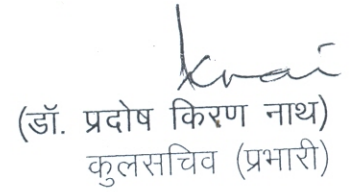 (डॉ. प्रदोष किरण नाथ)
कुलसचिव (प्रभारी)